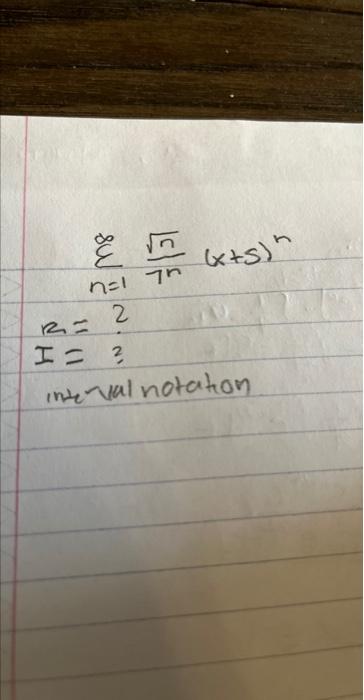 ∞
Σ √n/7ⁿ (x+5)ⁿ
n=1
R = ?
I = ?
interval notation